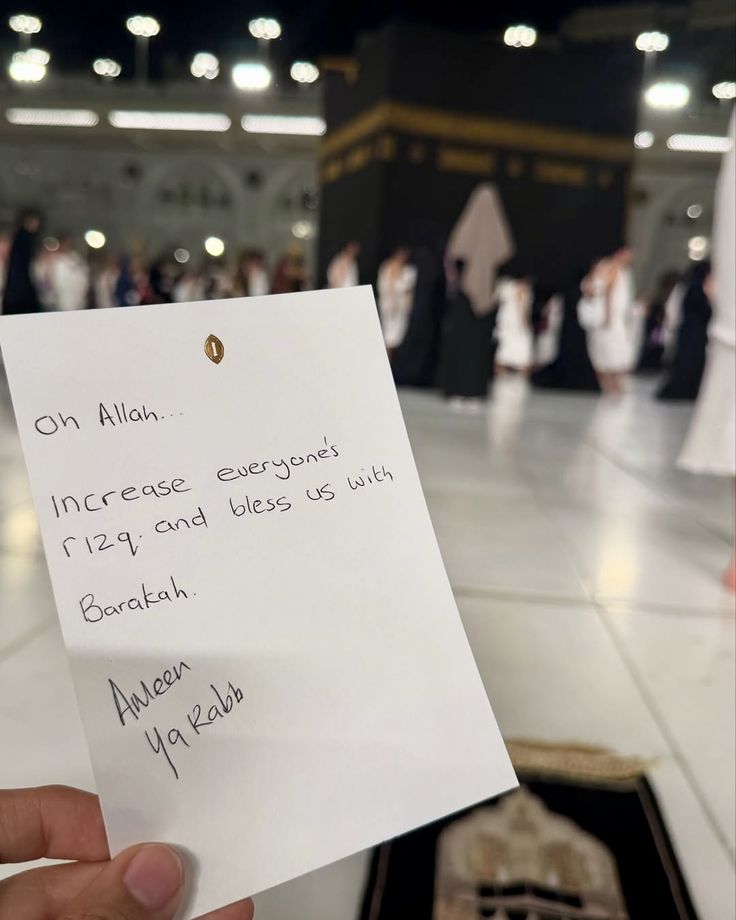 Oh Allah...
Increase everyone's
rizq. and bless us with
Barakah.
Ameen
Ya Rabb